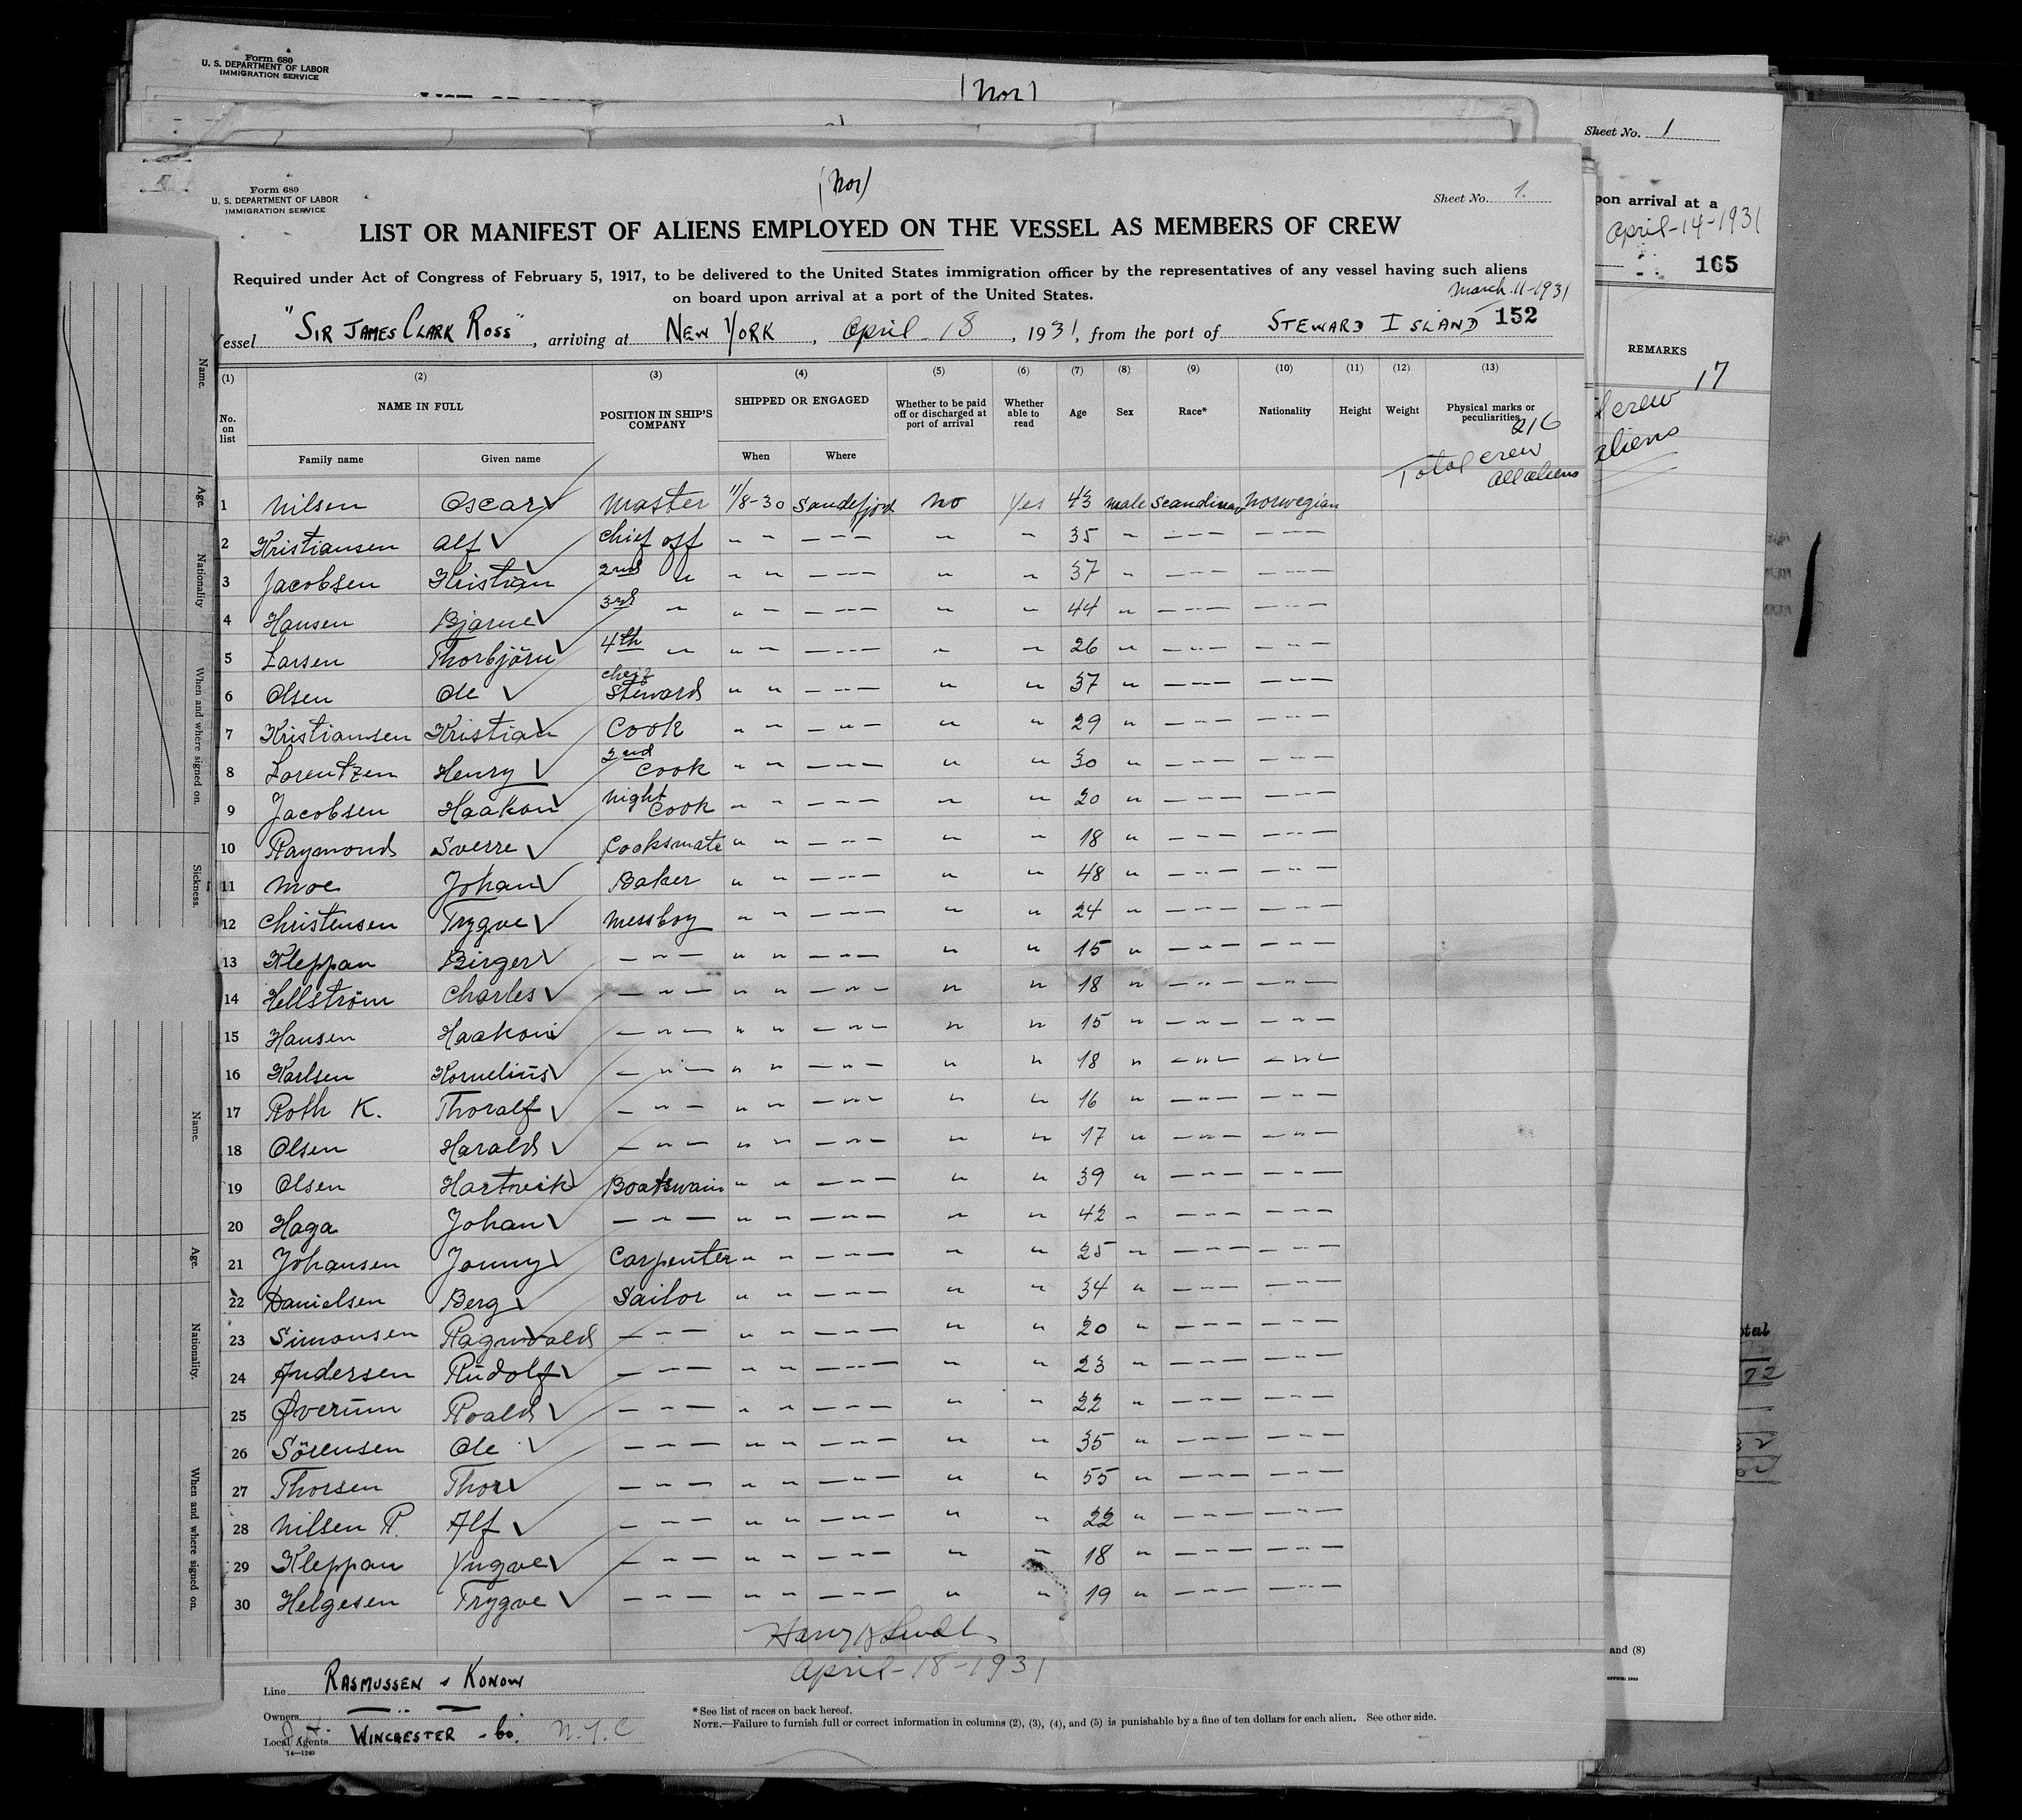 Form 680
U. S. DEPARTMENT OF LABOR
IMMIGRATION SERVICE
(Nor)
Sheet No. 1
Form 680
U. S. DEPARTMENT OF LABOR
IMMIGRATION SERVICE
(Nor)
Sheet No. 1.
LIST OR MANIFEST OF ALIENS EMPLOYED ON THE VESSEL AS MEMBERS OF CREW
Required under Act of Congress of February 5, 1917, to be delivered to the United States immigration officer by the representatives of any vessel having such aliens
on board upon arrival at a port of the United States.
March 11-1931
Vessel "SIR JAMES CLARK ROSS", arriving at NEW YORK, April 18, 1931, from the port of STEWARD ISLAND 152
pon arrival at a
April-14-1931
165
REMARKS
17
crew
aliens
(1) (2) (3) (4) (5) (6) (7) (8) (9) (10) (11) (12) (13)
No. on list NAME IN FULL POSITION IN SHIP'S COMPANY SHIPPED OR ENGAGED Whether to be paid off or discharged at port of arrival Whether able to read Age Sex Race* Nationality Height Weight Physical marks or peculiarities
Family name Given name When Where
216
Total crew
All aliens
1 Nilsen Oscar Master 11/8-30 Sandefjord No Yes 43 male Scandinav Norwegian
2 Kristiansen Alf Chief off " " — " — " " 35 " — " — — " —
3 Jacobsen Kristian 2nd " " " — " — " " 37 " — " — — " —
4 Hansen Bjarne 3rd " " " — " — " " 44 " — " — — " —
5 Larsen Thorbjörn 4th " " " — " — " " 26 " — " — — " —
6 Olsen Ole Cheif Steward " " — " — " " 37 " — " — — " —
7 Kristiansen Kristian Cook " " — " — " " 29 " — " — — " —
8 Lorentzen Henry 2nd Cook " " — " — " " 30 " — " — — " —
9 Jacobsen Haakon Night Cook " " — " — " " 20 " — " — — " —
10 Raymond Sverre Cooksmate " " — " — " " 18 " — " — — " —
11 Moe Johan Baker " " — " — " " 48 " — " — — " —
12 Christensen Trygve Messboy " " — " — " " 24 " — " — — " —
13 Kleppan Birger — " — " " — " — " " 15 " — " — — " —
14 Hellström Charles — " — " " — " — " " 18 " — " — — " —
15 Hansen Haakon — " — " " — " — " " 15 " — " — — " —
16 Karlsen Kornelius — " — " " — " — " " 18 " — " — — " —
17 Roth K. Thoralf — " — " " — " — " " 16 " — " — — " —
18 Olsen Harald — " — " " — " — " " 17 " — " — — " —
19 Olsen Hartvik Boatswain " " — " — " " 39 " — " — — " —
20 Haga Johan — " — " " — " — " " 42 " — " — — " —
21 Johansen Jonny Carpenter " " — " — " " 25 " — " — — " —
22 Danielsen Berg Sailor " " — " — " " 34 " — " — — " —
23 Simonsen Ragnvald — " — " " — " — " " 20 " — " — — " —
24 Andersen Rudolf — " — " " — " — " " 23 " — " — — " —
25 Øverum Roald — " — " " — " — " " 22 " — " — — " —
26 Sörensen Ole — " — " " — " — " " 35 " — " — — " —
27 Thorsen Thor — " — " " — " — " " 55 " — " — — " —
28 Nilsen R. Alf — " — " " — " — " " 22 " — " — — " —
29 Kleppan Yngve — " — " " — " — " " 18 " — " — — " —
30 Helgesen Trygve — " — " " — " — " " 19 " — " — — " —
Harry
April-18-1931
Line RASMUSSEN & KONOW
Owners — " —
Local Agents WINCHESTER & Co. N.Y.C
14—1240
*See list of races on back hereof.
NOTE.—Failure to furnish full or correct information in columns (2), (3), (4), and (5) is punishable by a fine of ten dollars for each alien. See other side.
and (8)
Name.
Age.
Nationality
When and where signed on.
Sickness.
Name.
Age.
Nationality.
When and where signed on.
otal
72